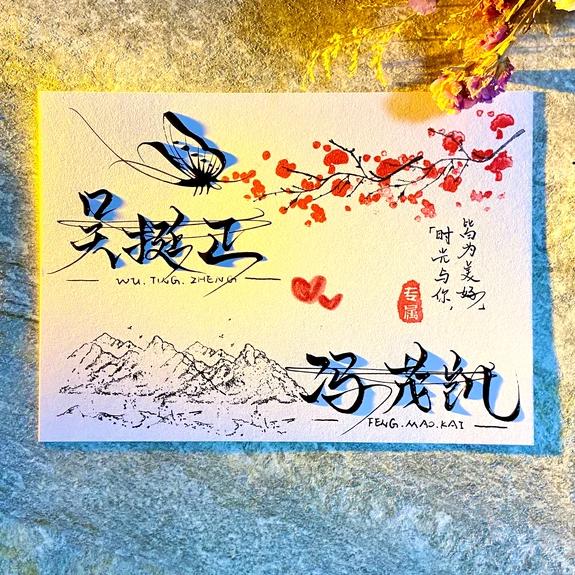 吴挺正
WU.TING.ZHENG
「时光与你，
皆为美好」
专属
冯茂凯
FENG.MAO.KAI